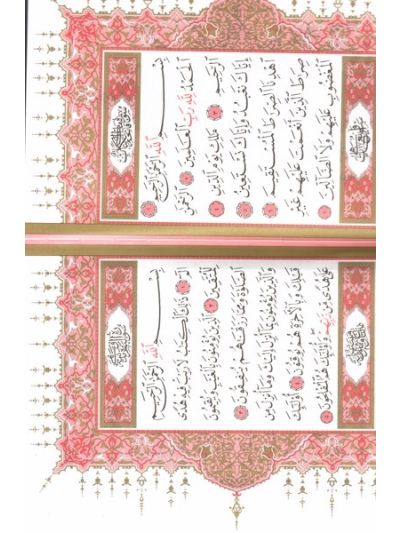 بِسْمِ اللَّهِ الرَّحْمَٰنِ الرَّحِيمِ ١
الْحَمْدُ لِلَّهِ رَبِّ الْعَٰلَمِينَ ٢ الرَّحْمَٰنِ
الرَّحِيمِ ٣ مَٰلِكِ يَوْمِ الدِّينِ ٤
إِيَّاكَ نَعْبُدُ وَإِيَّاكَ نَسْتَعِينُ ٥
اهْدِنَا الصِّرَٰطَ الْمُسْتَقِيمَ ٦
صِرَٰطَ الَّذِينَ أَنْعَمْتَ عَلَيْهِمْ غَيْرِ
الْمَغْضُوبِ عَلَيْهِمْ وَلَا الضَّالِّينَ ٧
بِسْمِ اللَّهِ الرَّحْمَٰنِ الرَّحِيمِ
الٓمٓ ١ ذَٰلِكَ الْكِتَٰبُ لَا رَيْبَ فِيهِ هُدًى
لِلْمُتَّقِينَ ٢ الَّذِينَ يُؤْمِنُونَ بِالْغَيْبِ وَيُقِيمُونَ
الصَّلَوٰةَ وَمِمَّا رَزَقْنَٰهُمْ يُنْفِقُونَ ٣
وَالَّذِينَ يُؤْمِنُونَ بِمَا أُنْزِلَ إِلَيْكَ وَمَا أُنْزِلَ مِنْ
قَبْلِكَ وَبِالْآخِرَةِ هُمْ يُوقِنُونَ ٤ أُولَٰئِكَ
عَلَىٰ هُدًى مِنْ رَبِّهِمْ وَأُولَٰئِكَ هُمُ الْمُفْلِحُونَ ٥